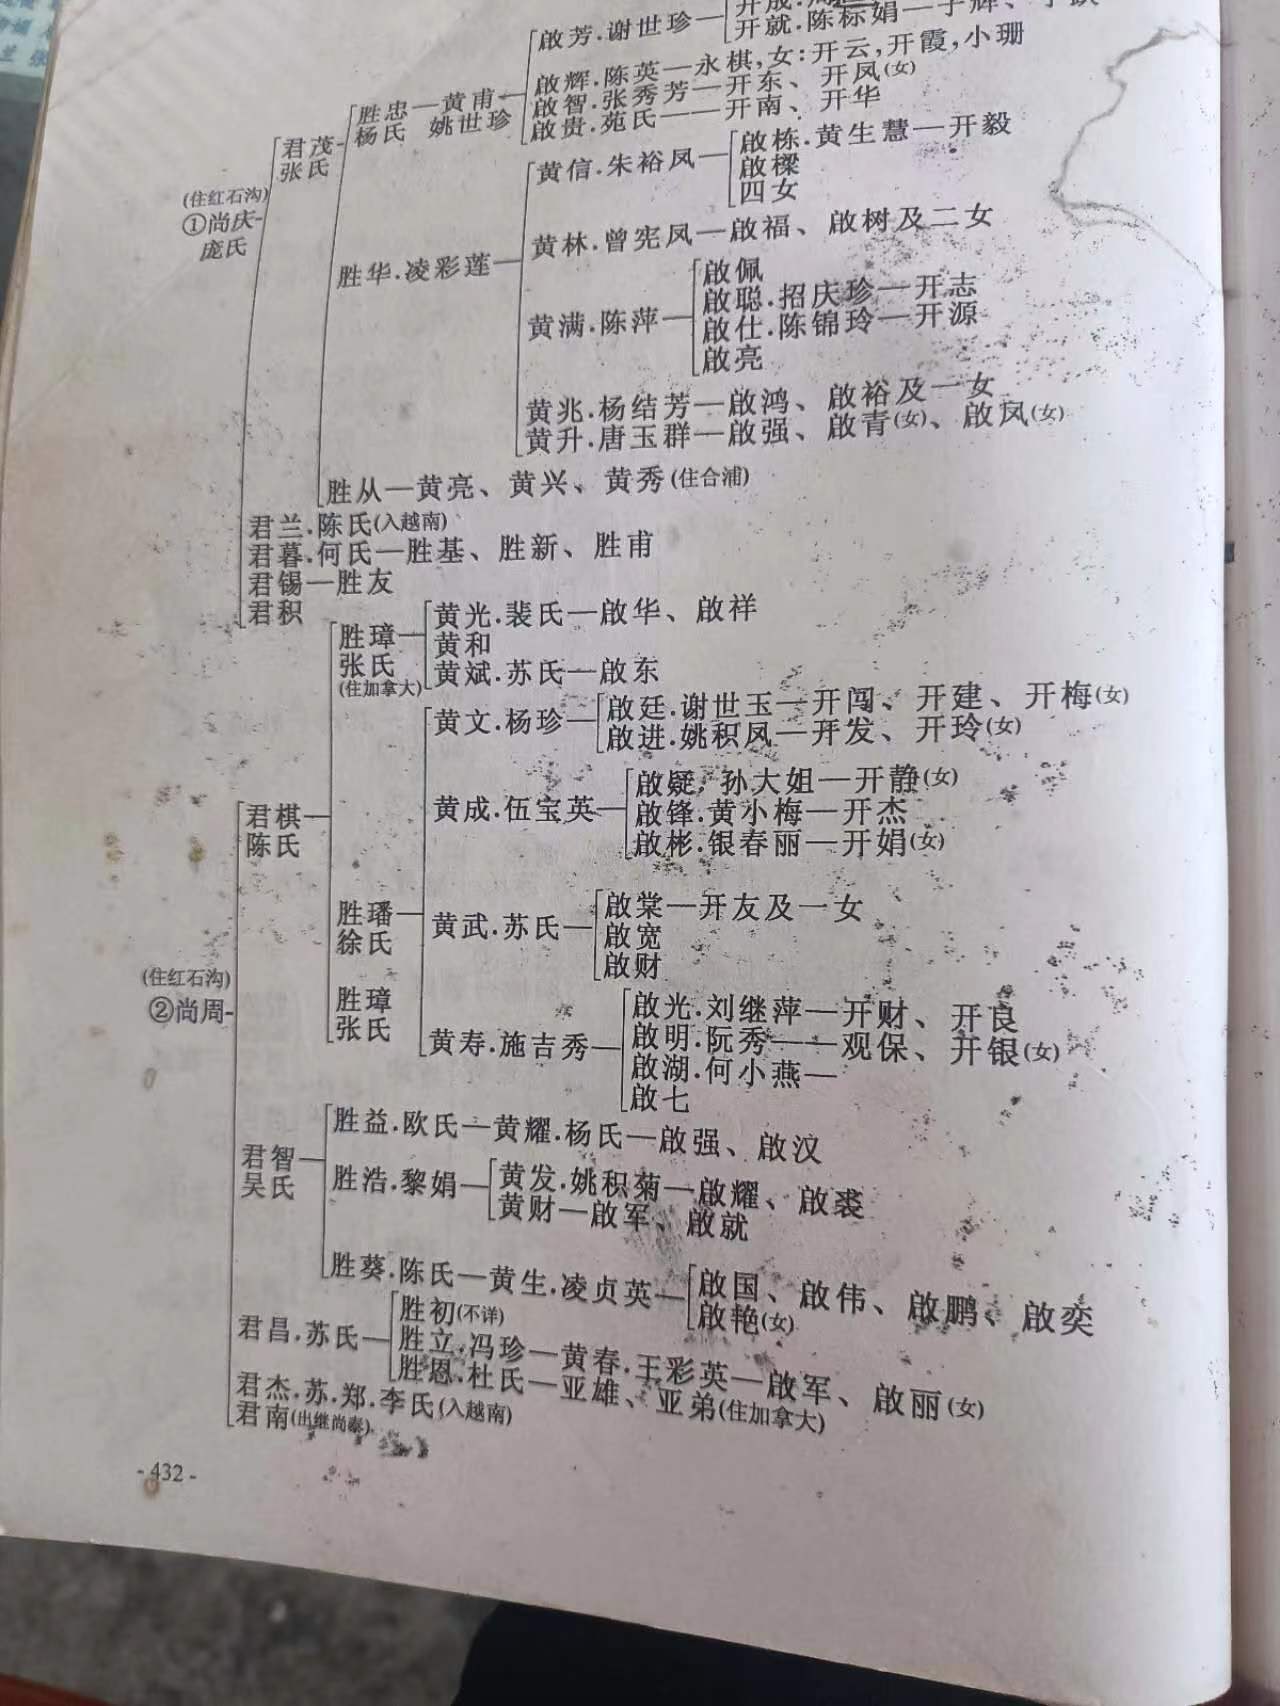 啟芳.谢世珍
开就.陈标娟
啟辉.陈英—永棋,女:开云,开霞,小珊
啟智.张秀芳—开东、开凤(女)
啟贵.苑氏——开南、开华
胜忠—黄甫
杨氏 姚世珍
君茂
张氏
(住红石沟)
①尚庆
庞氏
黄信.朱裕凤
啟栋.黄生慧—开毅
啟樑
四女
胜华.凌彩莲
黄林.曾宪凤—啟福、啟树及二女
黄满.陈萍
啟佩
啟聪.招庆珍—开志
啟仕.陈锦玲—开源
啟亮
黄兆.杨结芳—啟鸿、啟裕及一女
黄升.唐玉群—啟强、啟青(女)、啟凤(女)
胜从—黄亮、黄兴、黄秀(住合浦)
君兰.陈氏(入越南)
君暮.何氏—胜基、胜新、胜甫
君锡—胜友
君积
胜璋
张氏
(住加拿大)
黄光.裴氏—啟华、啟祥
黄和
黄斌.苏氏—啟东
黄文.杨珍
啟廷.谢世玉—开闯、开建、开梅(女)
啟进.姚积凤—开发、开玲(女)
君棋
陈氏
黄成.伍宝英
啟疑.孙大姐—开静(女)
啟锋.黄小梅—开杰
啟彬.银春丽—开娟(女)
胜璠
徐氏
黄武.苏氏
啟棠—开友及一女
啟宽
啟财
(住红石沟)
②尚周
胜璋
张氏
黄寿.施吉秀
啟光.刘继萍—开财、开良
啟明.阮秀——观保、开银(女)
啟湖.何小燕—
啟七
君智
吴氏
胜益.欧氏—黄耀.杨氏—啟强、啟汶
胜浩.黎娟
黄发.姚积菊—啟耀、啟裘
黄财—啟军、啟就
胜葵.陈氏—黄生.凌贞英
啟国、啟伟、啟鹏、啟奕
啟艳(女)
君昌.苏氏
胜初(不详)
胜立.冯珍—黄春.王彩英—啟军、啟丽(女)
胜恩.杜氏—亚雄、亚弟(住加拿大)
君杰.苏.郑.李氏(入越南)
君南(出继尚泰)
- 432 -